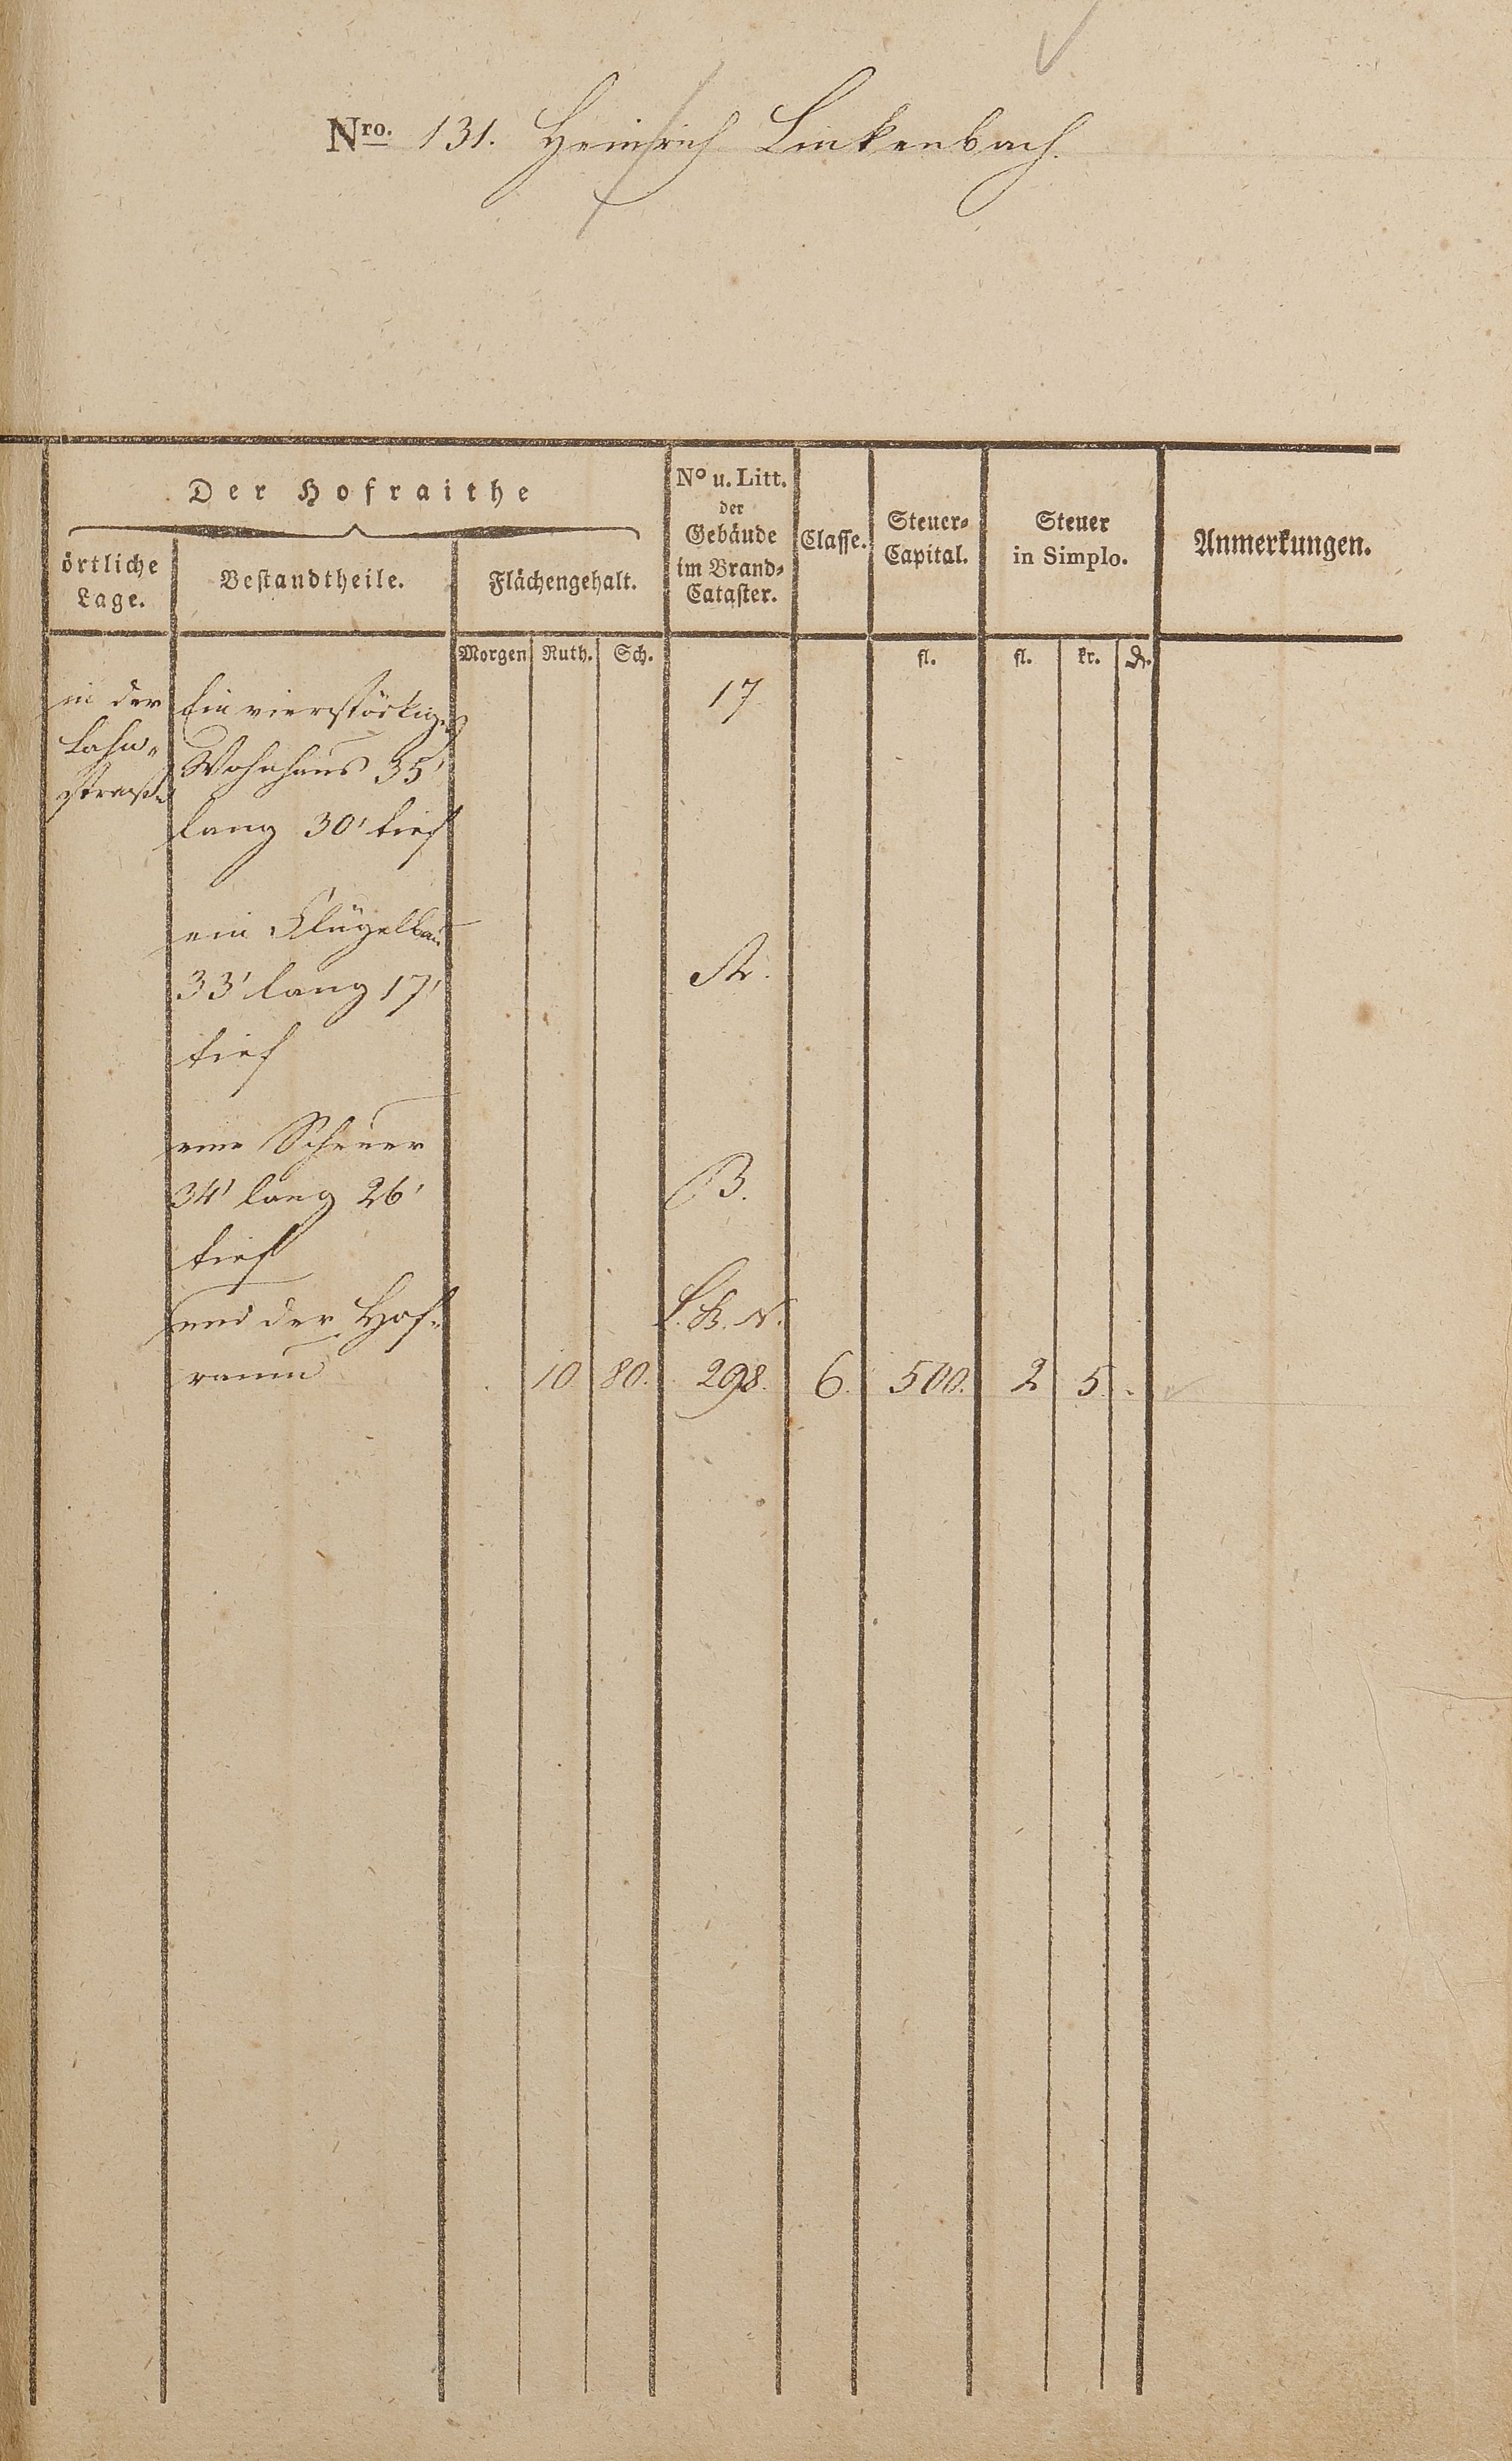 Nro. 131. Heinrich Linkenbach.
Der Hofraithe
örtliche Lage.
Bestandtheile.
Flächengehalt.
No u. Litt. der Gebäude im Brand-Cataster.
Classe.
Steuer-Capital.
Steuer in Simplo.
Anmerkungen.
Morgen Ruth. Sch. fl. fl. kr. ₰.
in der Ein vierstöckiges 17
Lahn-
Wohnhaus 35'
straße
lang 30' tief
ein Flügelbau
33' lang 17' A.
tief
eine Scheuer
34' lang 26' B.
tief
und der Hof- L. B. N.
raum 10 80. 298. 6. 500. 2 5. -